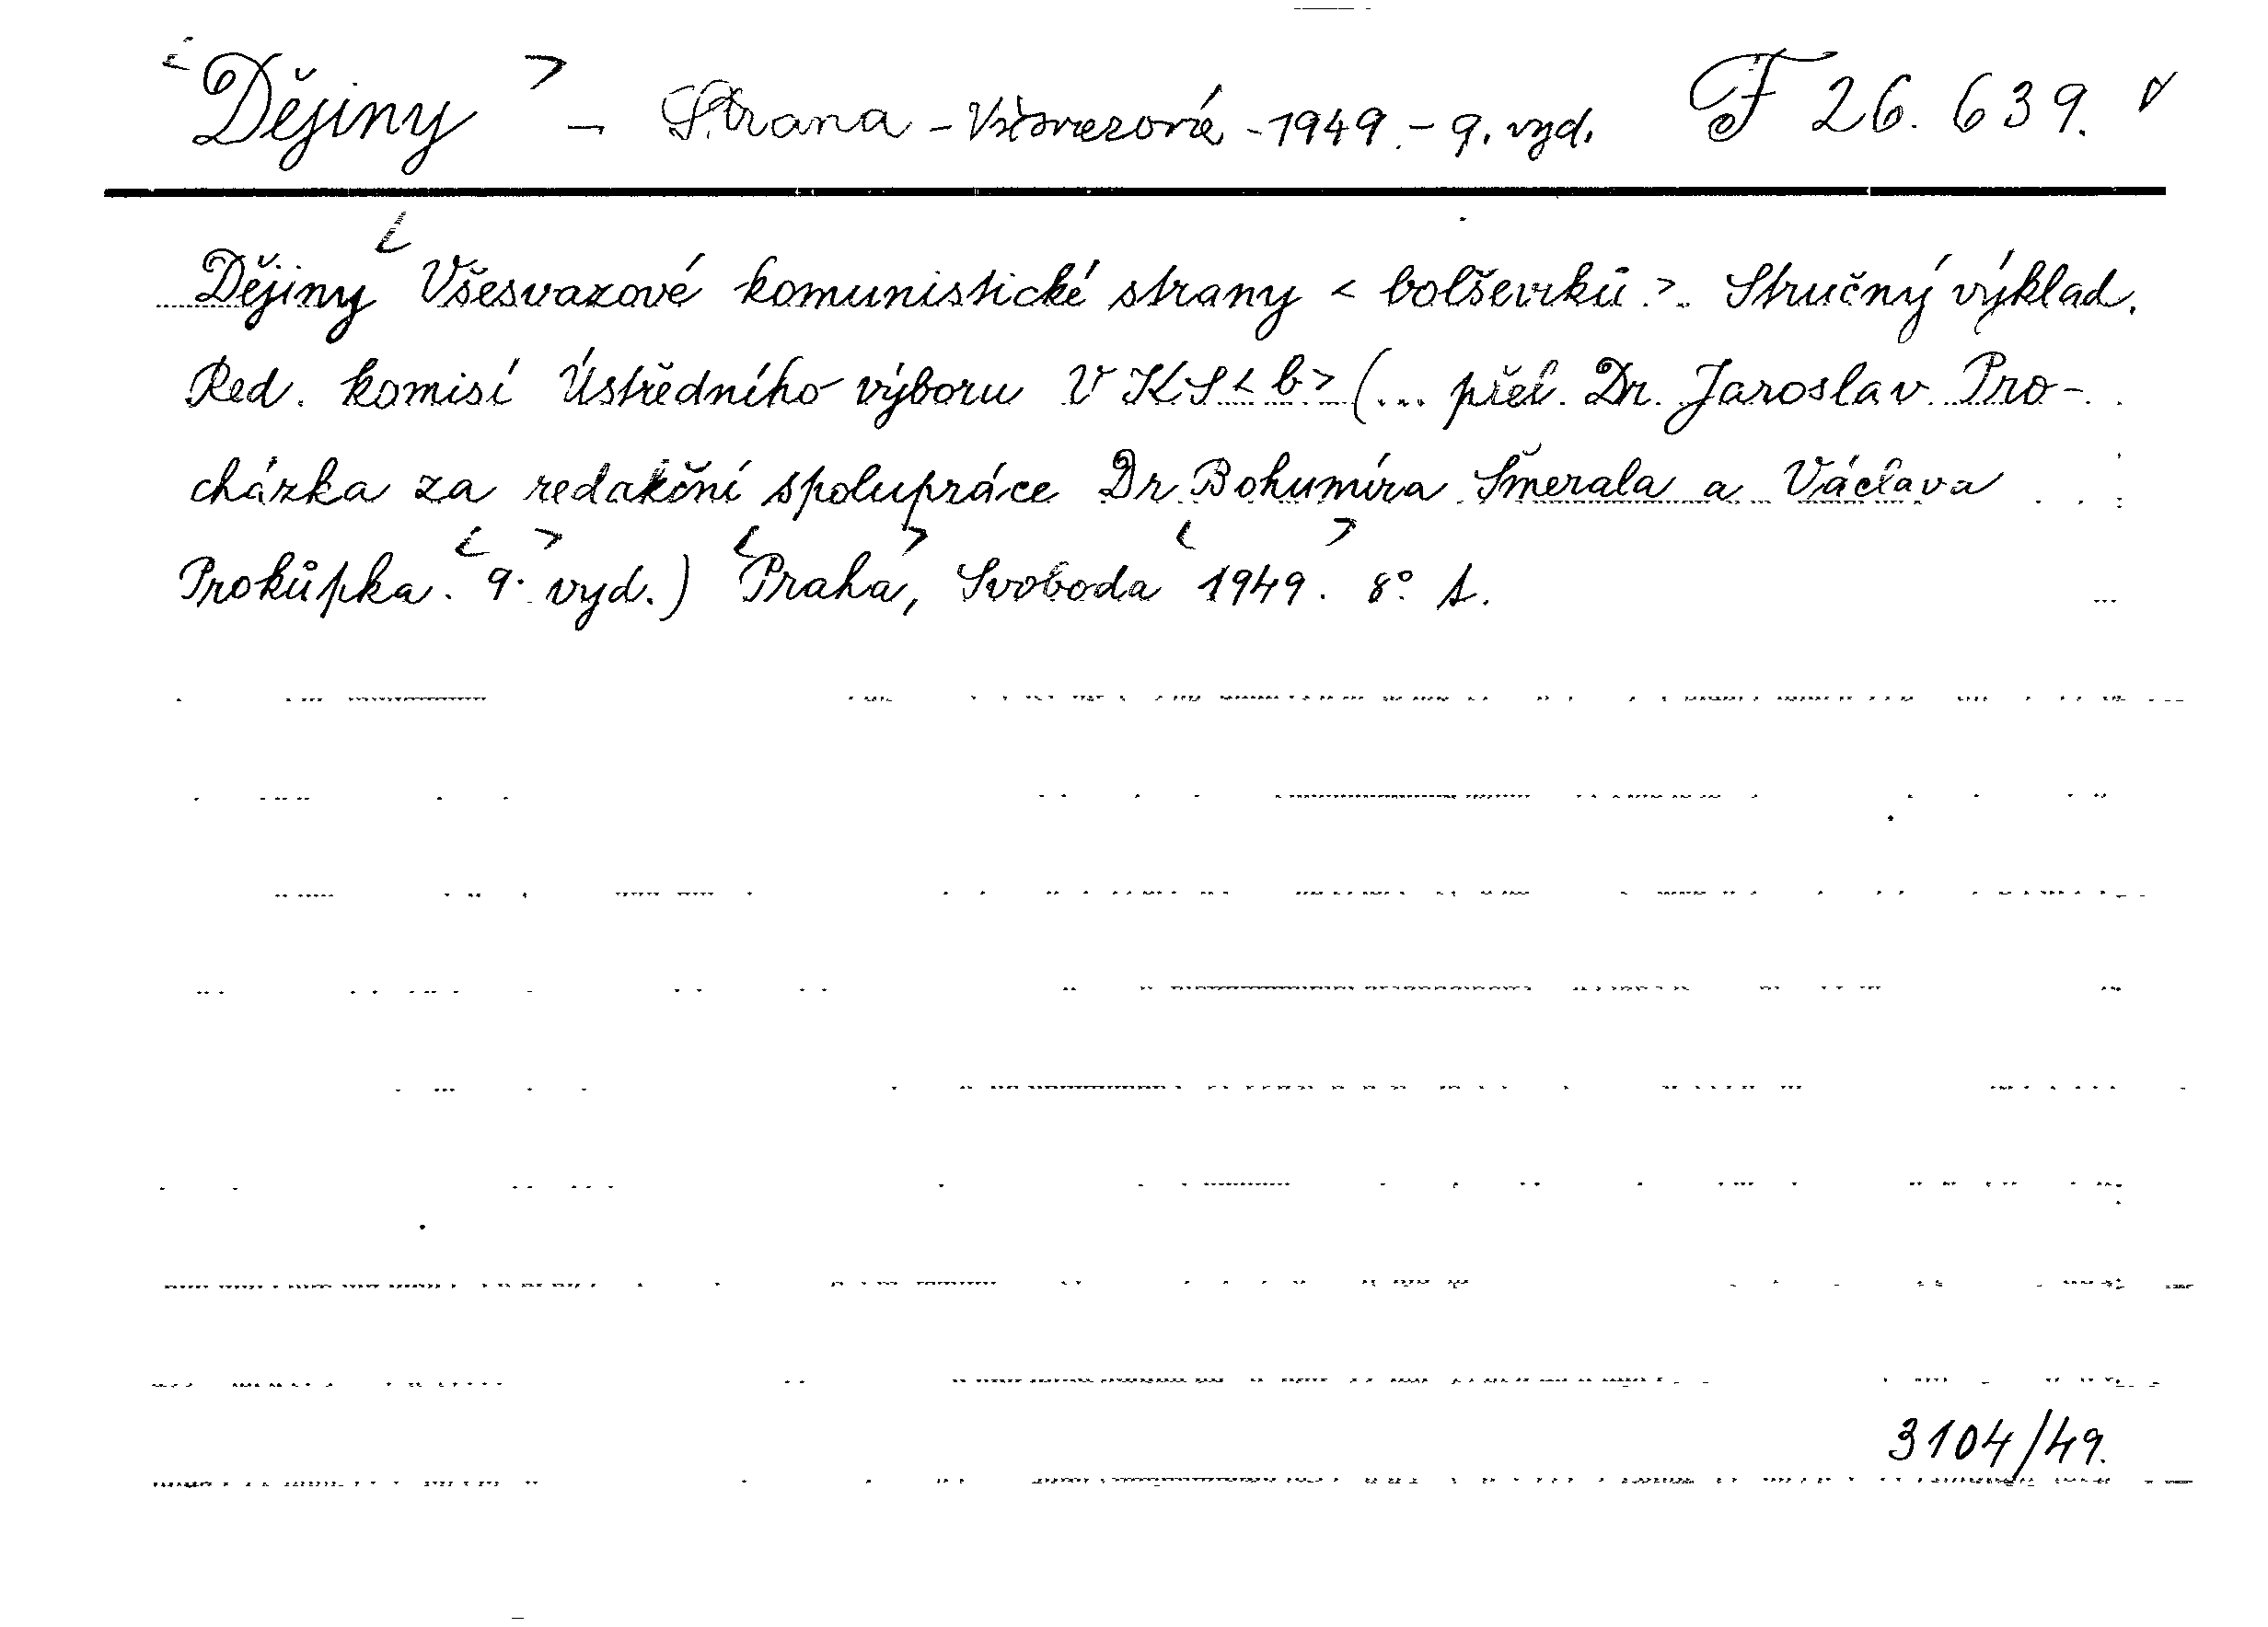 <Dějiny> - Strana - Všesvazová - 1949. - 9. vyd. F 26.639. v
Dějiny <Všesvazové komunistické strany <bolševiků>. Stručný výklad.
Red. komisí Ústředního výboru VKS<b> (... přel. Dr. Jaroslav Pro-
cházka za redakční spolupráce Dr Bohumíra Šmerala a Václava
Prokůpka. <9.> vyd.) <Praha>, Svoboda <1949>. 8° s.
3104/49.